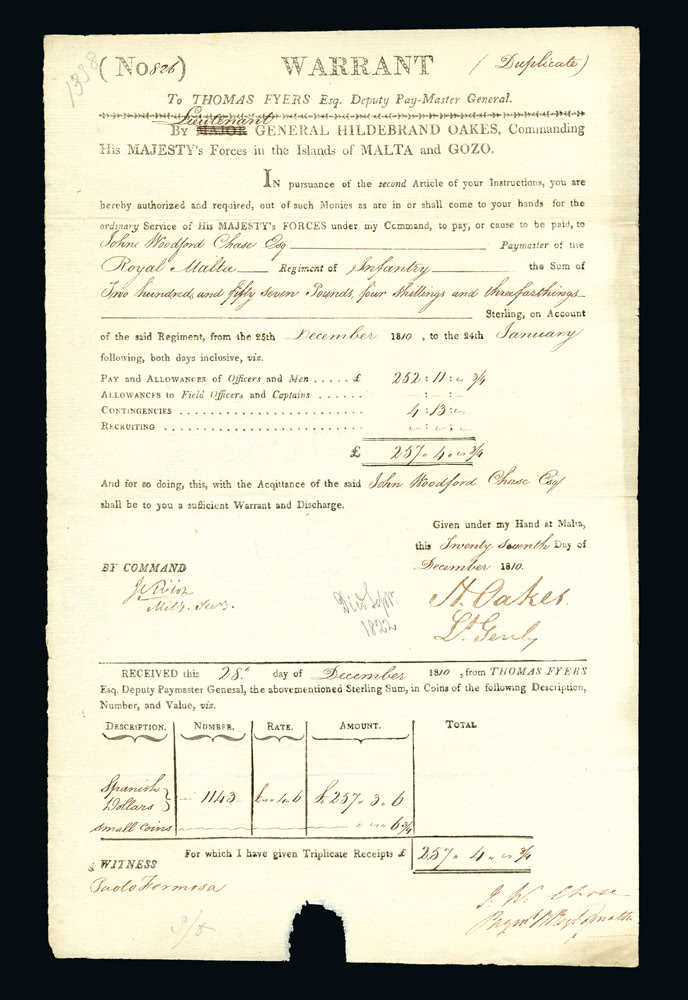 1338
(No 826) WARRANT (Duplicate)
To THOMAS FYERS Esq. Deputy Pay-Master General.
Lieutenant
By MAJOR GENERAL HILDEBRAND OAKES, Commanding
His MAJESTY's Forces in the Islands of MALTA and GOZO.
IN pursuance of the second Article of your Instructions, you are
hereby authorized and required, out of such Monies as are in or shall come to your hands for the
ordinary Service of His MAJESTY's FORCES under my Command, to pay, or cause to be paid, to
John Woodford Chase Esq Paymaster of the
Royal Malta Regiment of Infantry the Sum of
Two hundred and fifty seven Pounds, four shillings and three farthings
Sterling, on Account
of the said Regiment, from the 25th December 1810, to the 24th January
following, both days inclusive, viz.
PAY AND ALLOWANCES of Officers and Men ..... £ 252 : 11 : " 3/4
ALLOWANCES to Field Officers and Captains ...... - : - : -
CONTINGENCIES ........................ 4 : 13 : "
RECRUITING ........................ " : " : "
£ 257 " 4 " " 3/4
And for so doing, this, with the Acqittance of the said John Woodford Chase Esq
shall be to you a sufficient Warrant and Discharge.
Given under my Hand at Malta,
this Twenty Seventh Day of
BY COMMAND December 1810.
Mily. Sec.
H. Oakes
Lt. Genl.
Died Septr.
1822
RECEIVED this 28th day of December 1810, from THOMAS FYERS
Esq. Deputy Paymaster Genesal, the abovementioned Sterling Sum, in Coins of the following Description,
Number, and Value, viz.
DESCRIPTION. NUMBER. RATE. AMOUNT. TOTAL
Spanish Dollars } 1143 £ " 4 " 6 £ 257 " 3 " 6
small coins " " " 6 3/4
For which I have given Triplicate Receipts £ 257 " 4 " " 3/4
WITNESS
Paolo Formosa
J. W. Chase